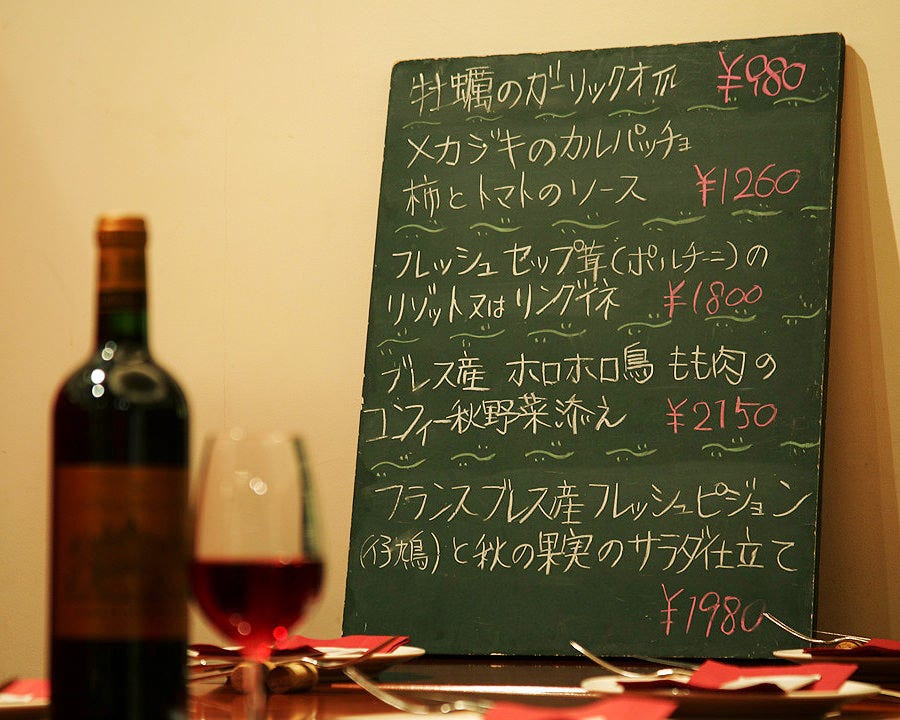 牡蠣のガーリックオイル ¥980
メカジキのカルパッチョ
柿とトマトのソース ¥1260
フレッシュセップ茸(ポルチーニ)の
リゾット又はリングイネ ¥1800
ブレス産 ホロホロ鳥 もも肉の
コンフィー秋野菜添え ¥2150
フランスブレス産フレッシュピジョン
(仔鳩)と秋の果実のサラダ仕立て
¥1980